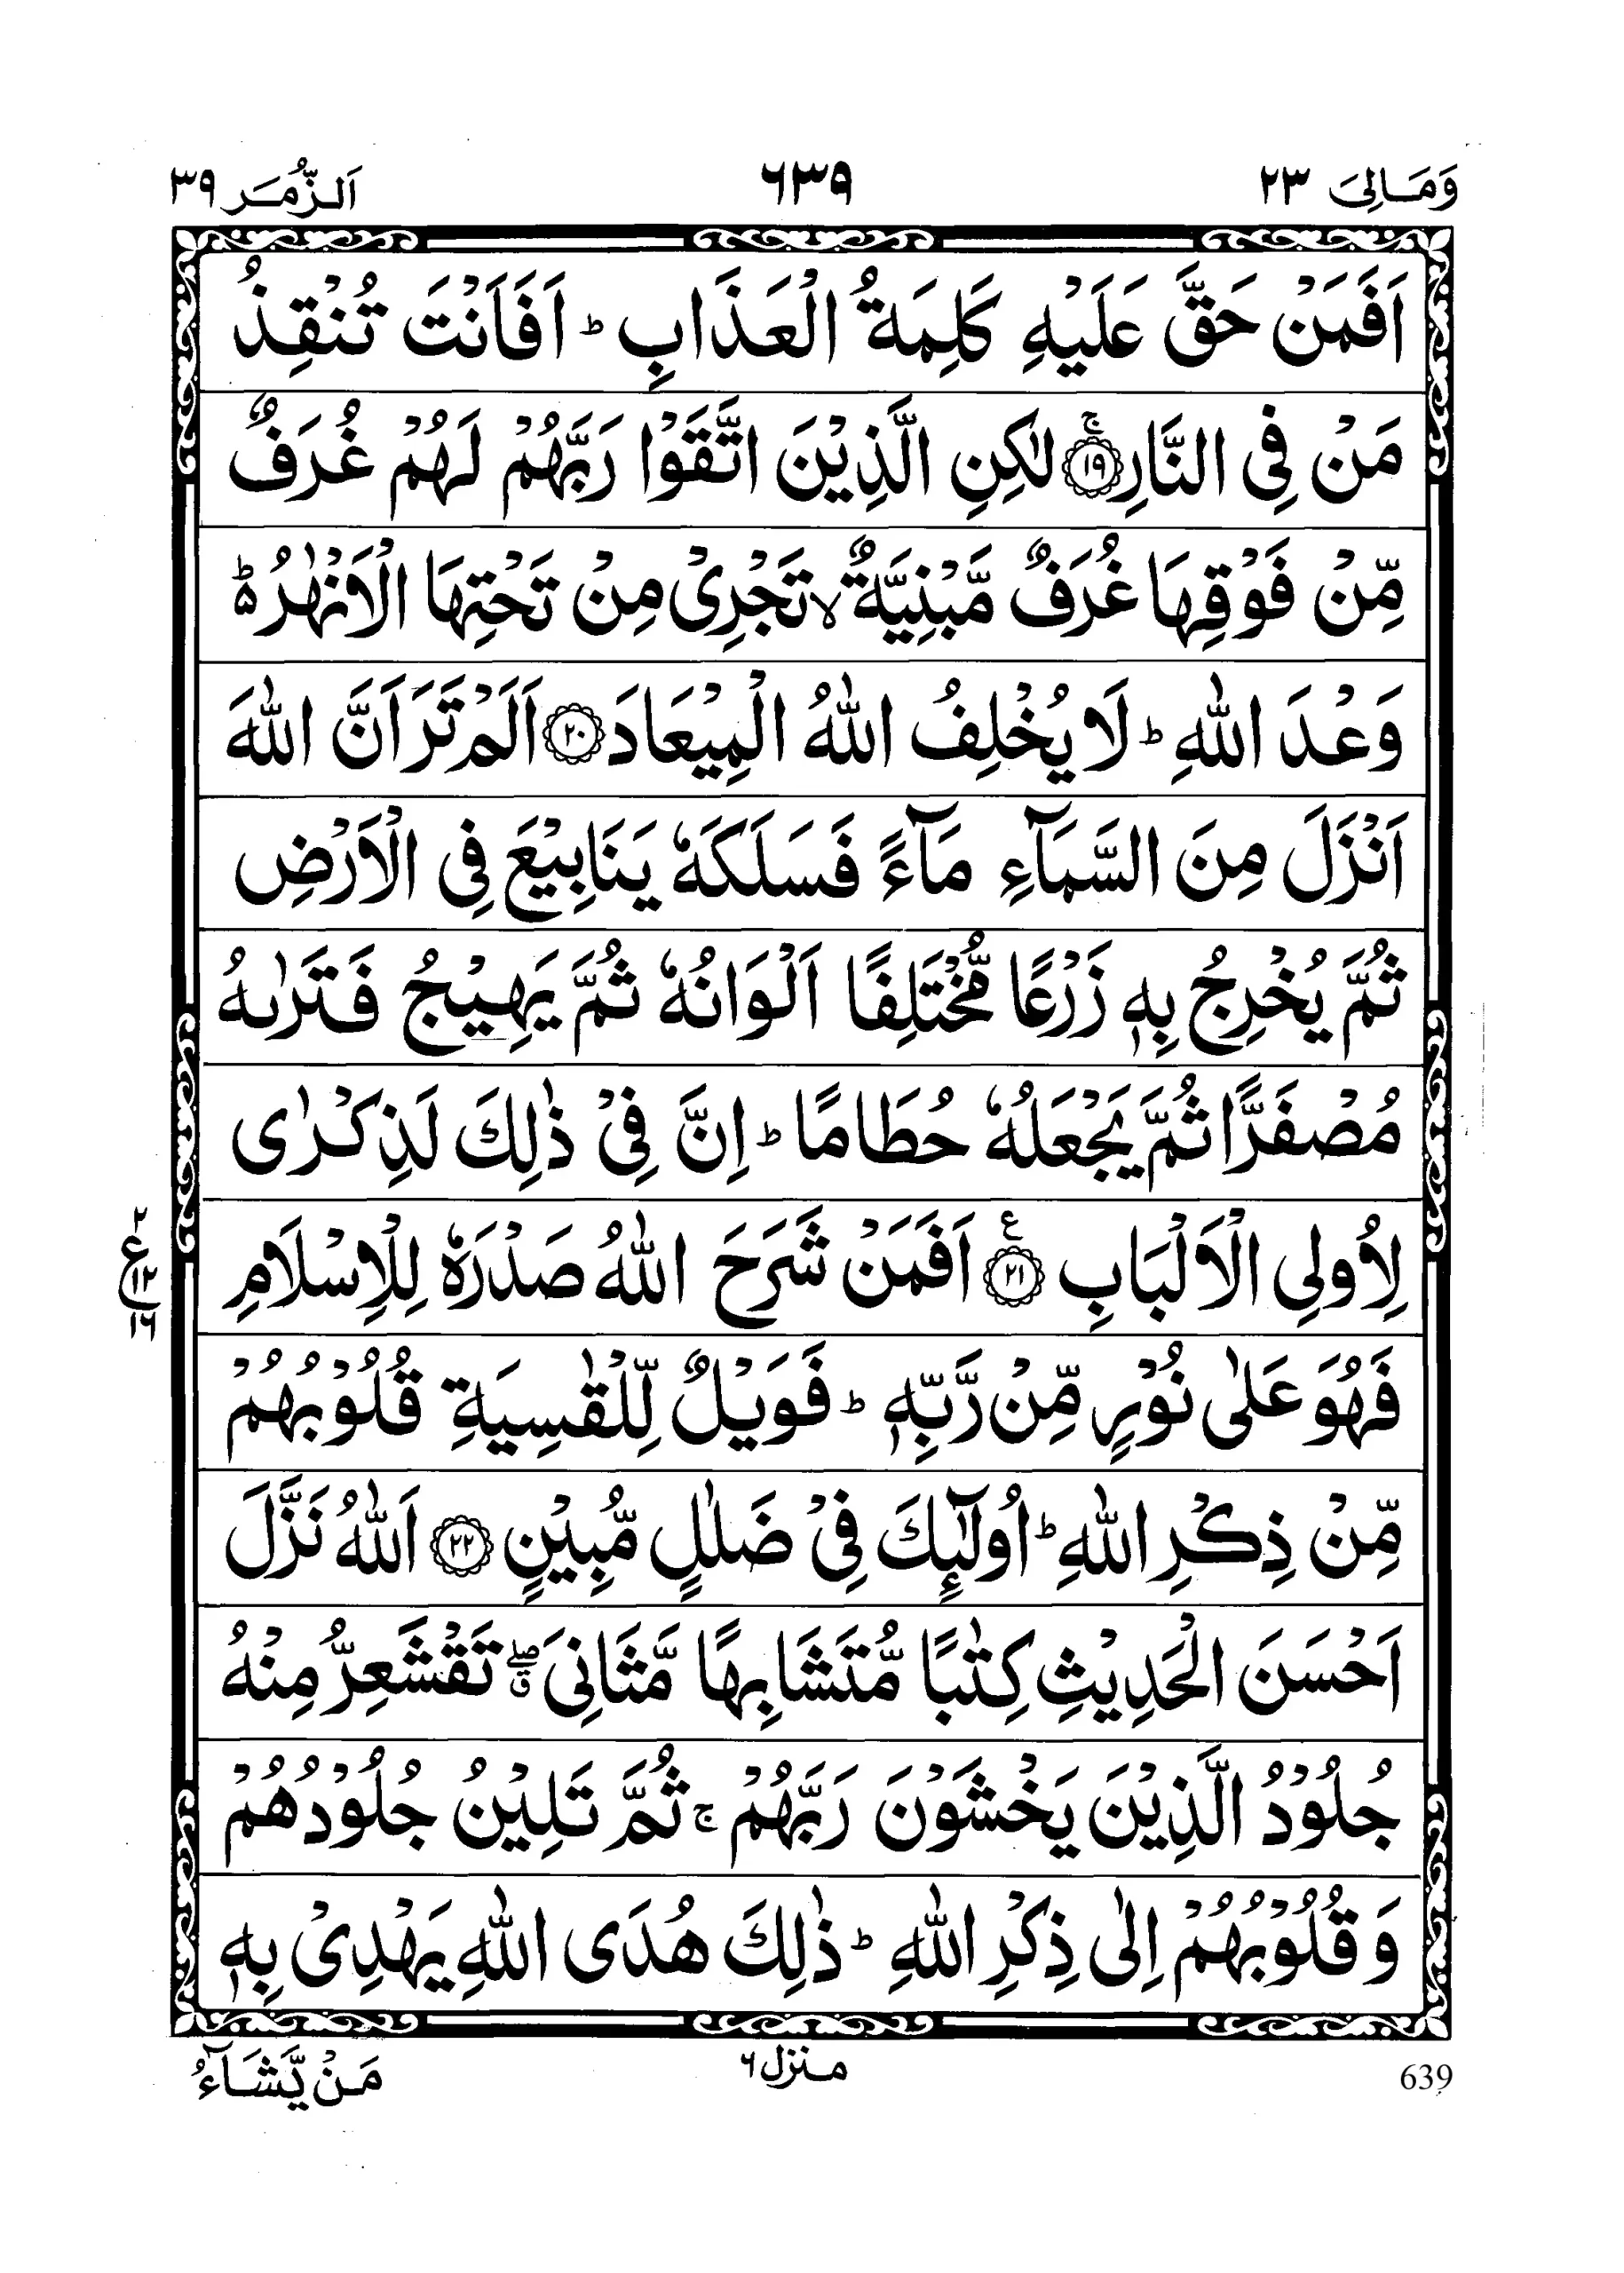 وَمَالِیَ ٢٣
٦٣٩
اَلزُّمَر ٣٩
اَفَمَنْ حَقَّ عَلَيْهِ كَلِمَةُ الْعَذَابِ ؕ اَفَاَنْتَ تُنْقِذُ
مَنْ فِی النَّارِ ۚ﴿١٩﴾ لٰكِنِ الَّذِيْنَ اتَّقَوْا رَبَّهُمْ لَهُمْ غُرَفٌ
مِّنْ فَوْقِهَا غُرَفٌ مَّبْنِيَّةٌ ۙ تَجْرِیْ مِنْ تَحْتِهَا الْاَنْهٰرُ ۬ؕ
وَعْدَ اللّٰهِ ؕ لَا يُخْلِفُ اللّٰهُ الْمِيْعَادَ ﴿٢٠﴾ اَلَمْ تَرَ اَنَّ اللّٰهَ
اَنْزَلَ مِنَ السَّمَآءِ مَآءً فَسَلَكَهٗ يَنَابِيْعَ فِی الْاَرْضِ
ثُمَّ يُخْرِجُ بِهٖ زَرْعًا مُّخْتَلِفًا اَلْوَانُهٗ ثُمَّ يَهِيْجُ فَتَرٰىهُ
مُصْفَرًّا ثُمَّ يَجْعَلُهٗ حُطَامًا ؕ اِنَّ فِیْ ذٰلِكَ لَذِكْرٰی
لِاُولِی الْاَلْبَابِ ﴿٢١﴾ؑ اَفَمَنْ شَرَحَ اللّٰهُ صَدْرَهٗ لِلْاِسْلَامِ
٢
ع
١٢
١٦
فَهُوَ عَلٰی نُوْرٍ مِّنْ رَّبِّهٖ ؕ فَوَيْلٌ لِّلْقٰسِيَةِ قُلُوْبُهُمْ
مِّنْ ذِكْرِ اللّٰهِ ؕ اُولٰٓئِكَ فِیْ ضَلٰلٍ مُّبِيْنٍ ﴿٢٢﴾ اَللّٰهُ نَزَّلَ
اَحْسَنَ الْحَدِيْثِ كِتٰبًا مُّتَشَابِهًا مَّثَانِیَ ۖۗ تَقْشَعِرُّ مِنْهُ
جُلُوْدُ الَّذِيْنَ يَخْشَوْنَ رَبَّهُمْ ۚ ثُمَّ تَلِيْنُ جُلُوْدُهُمْ
وَقُلُوْبُهُمْ اِلٰی ذِكْرِ اللّٰهِ ؕ ذٰلِكَ هُدَی اللّٰهِ يَهْدِیْ بِهٖ
639
منزل ٦
مَنْ يَّشَآءُ